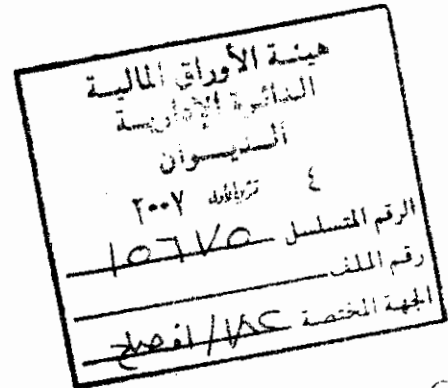 هيئة الأوراق المالية
الدائرة الإدارية
الديوان
٤ تشرين الأول ٢٠٠٧
الرقم المتسلسل ١٥٦٧٥
رقم الملف
الجهة المختصة / افصاح